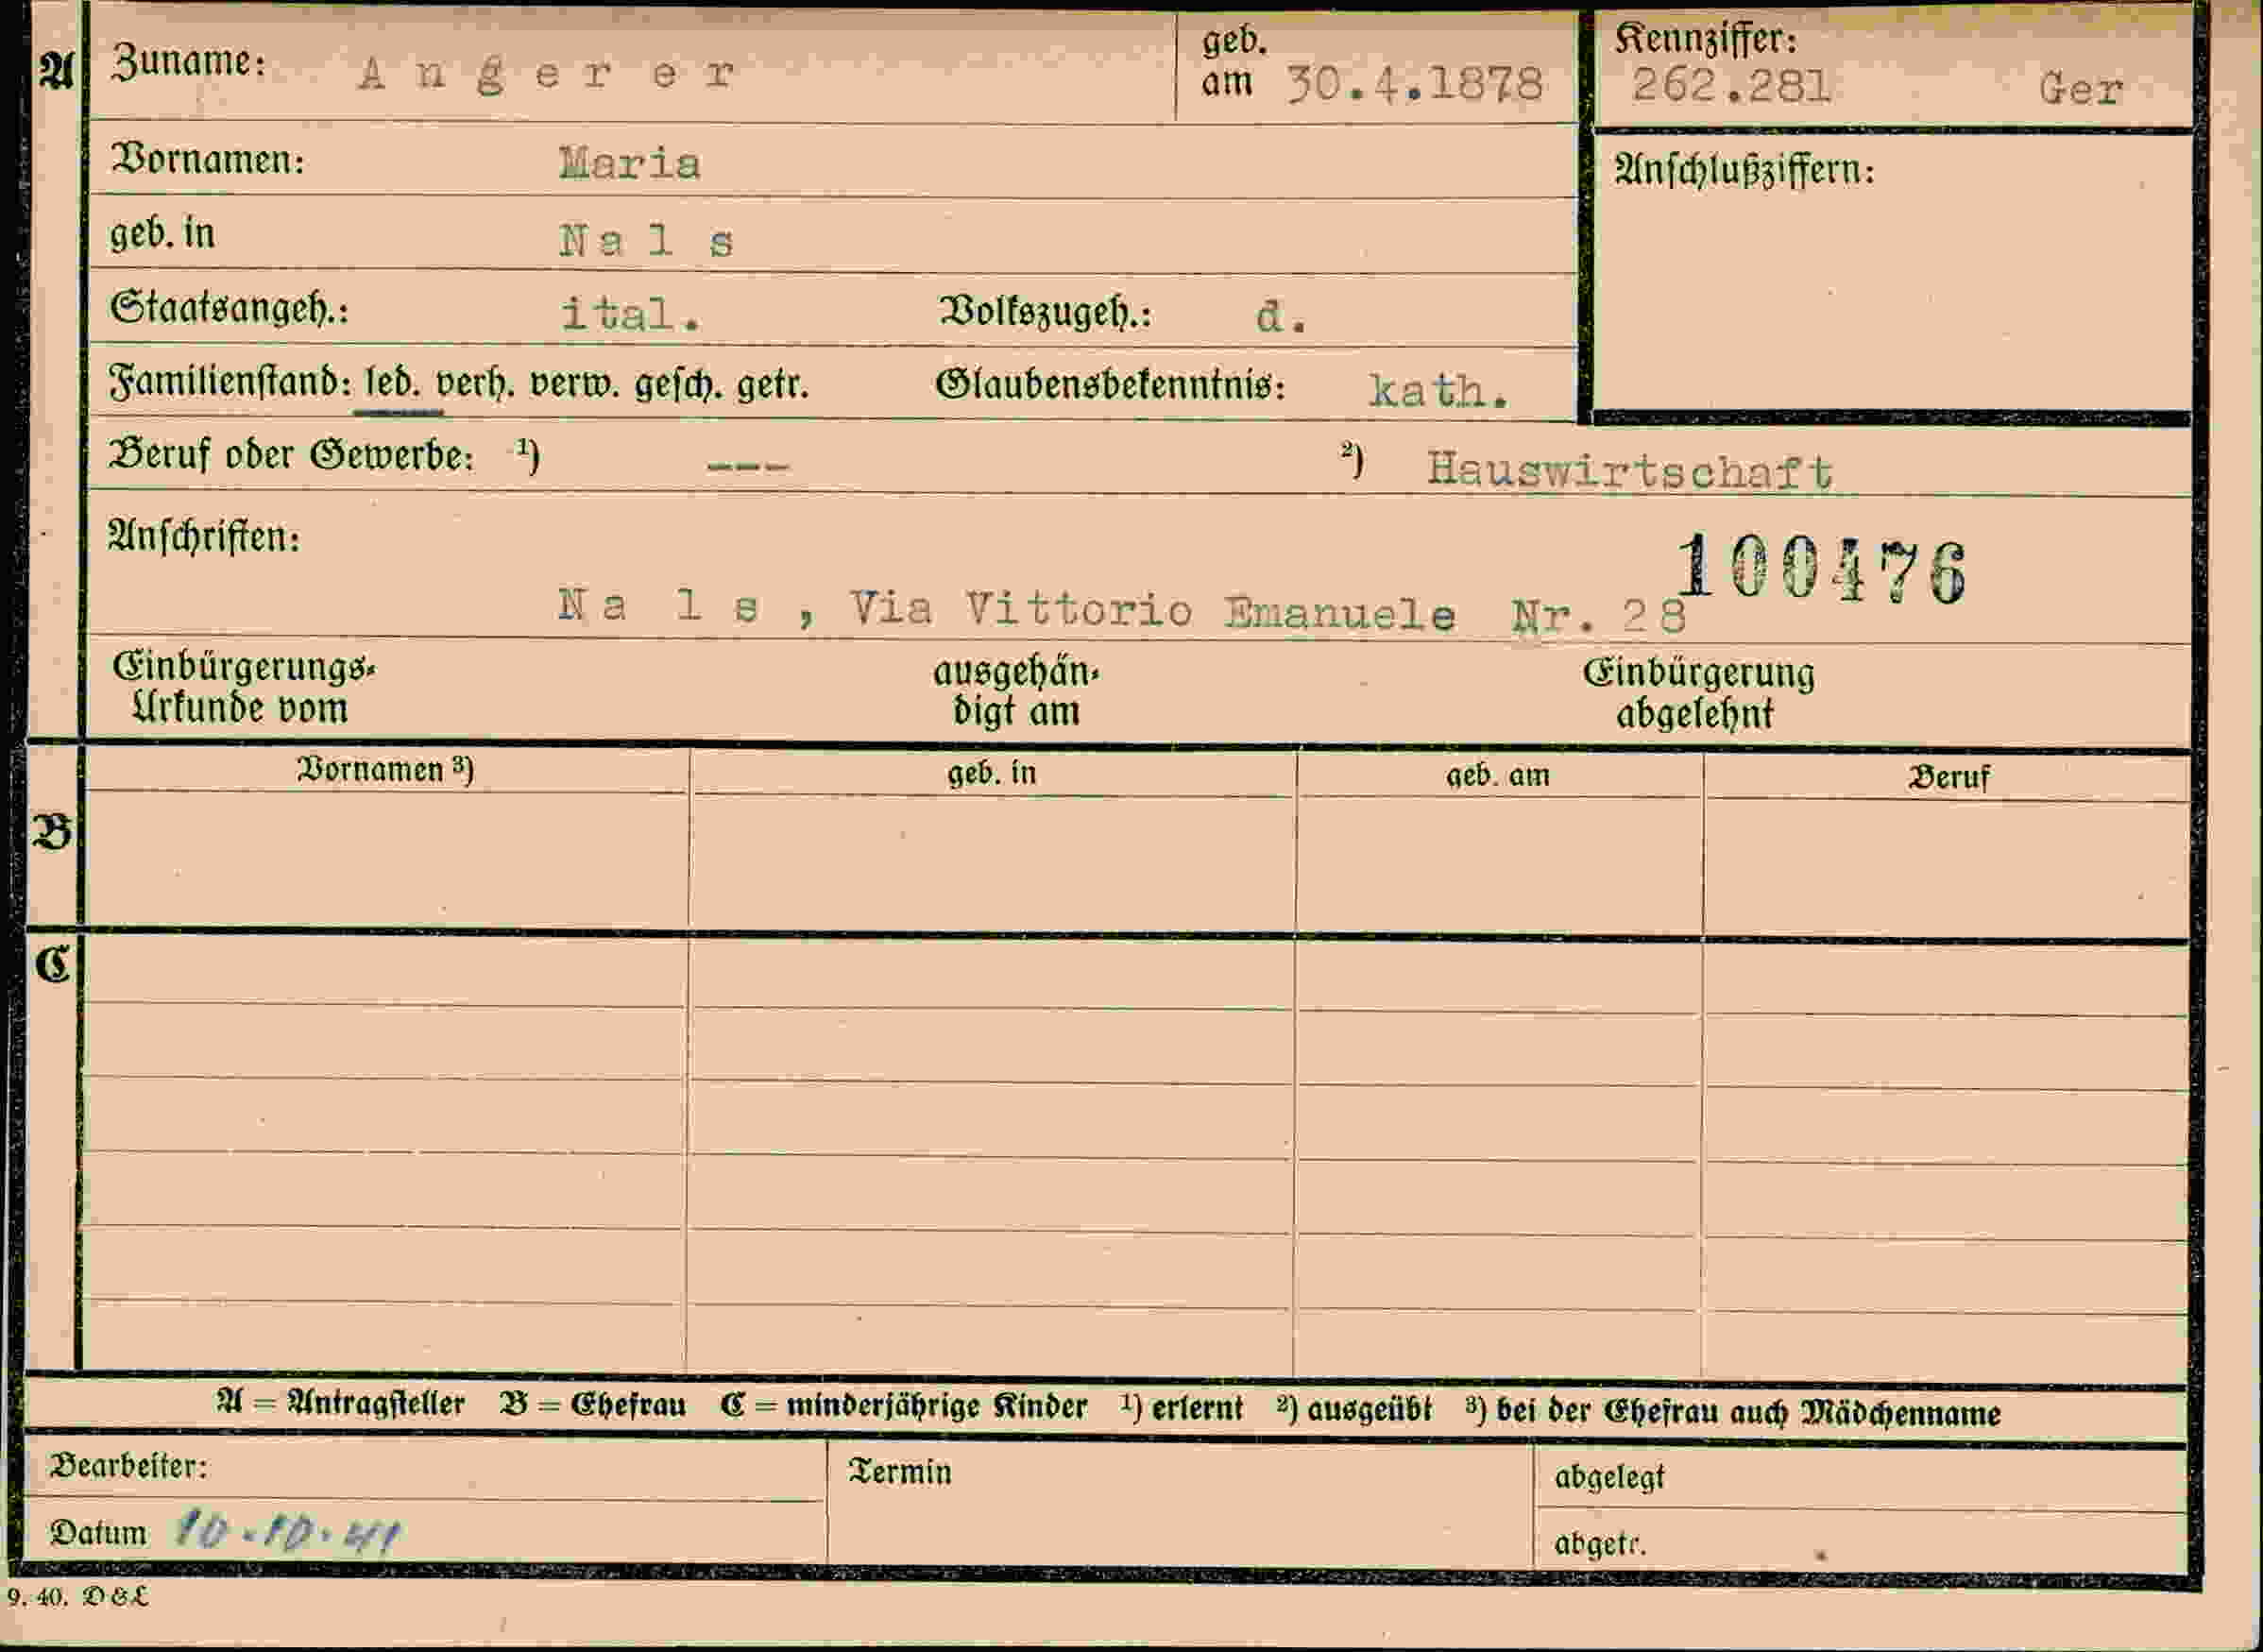 A Zuname: Angerer geb. am 30.4.1878 Kennziffer: 262.281 Ger
Vornamen: Maria Anschlußziffern:
geb. in Nals
Staatsangeh.: ital. Volkszugeh.: d.
Familienstand: led. verh. verw. gesch. getr. Glaubensbekenntnis: kath.
Beruf oder Gewerbe: ¹) --- ²) Hauswirtschaft
Anschriften:
100476
Nals, Via Vittorio Emanuele Nr. 28
Einbürgerungs-Urkunde vom ausgehändigt am Einbürgerung abgelehnt
Vornamen ³) geb. in geb. am Beruf
B
C
A = Antragsteller B = Ehefrau C = minderjährige Kinder ¹) erlernt ²) ausgeübt ³) bei der Ehefrau auch Mädchenname
Bearbeiter: Termin abgelegt
Datum 10.10.41 abgetr.
9. 40. D&L